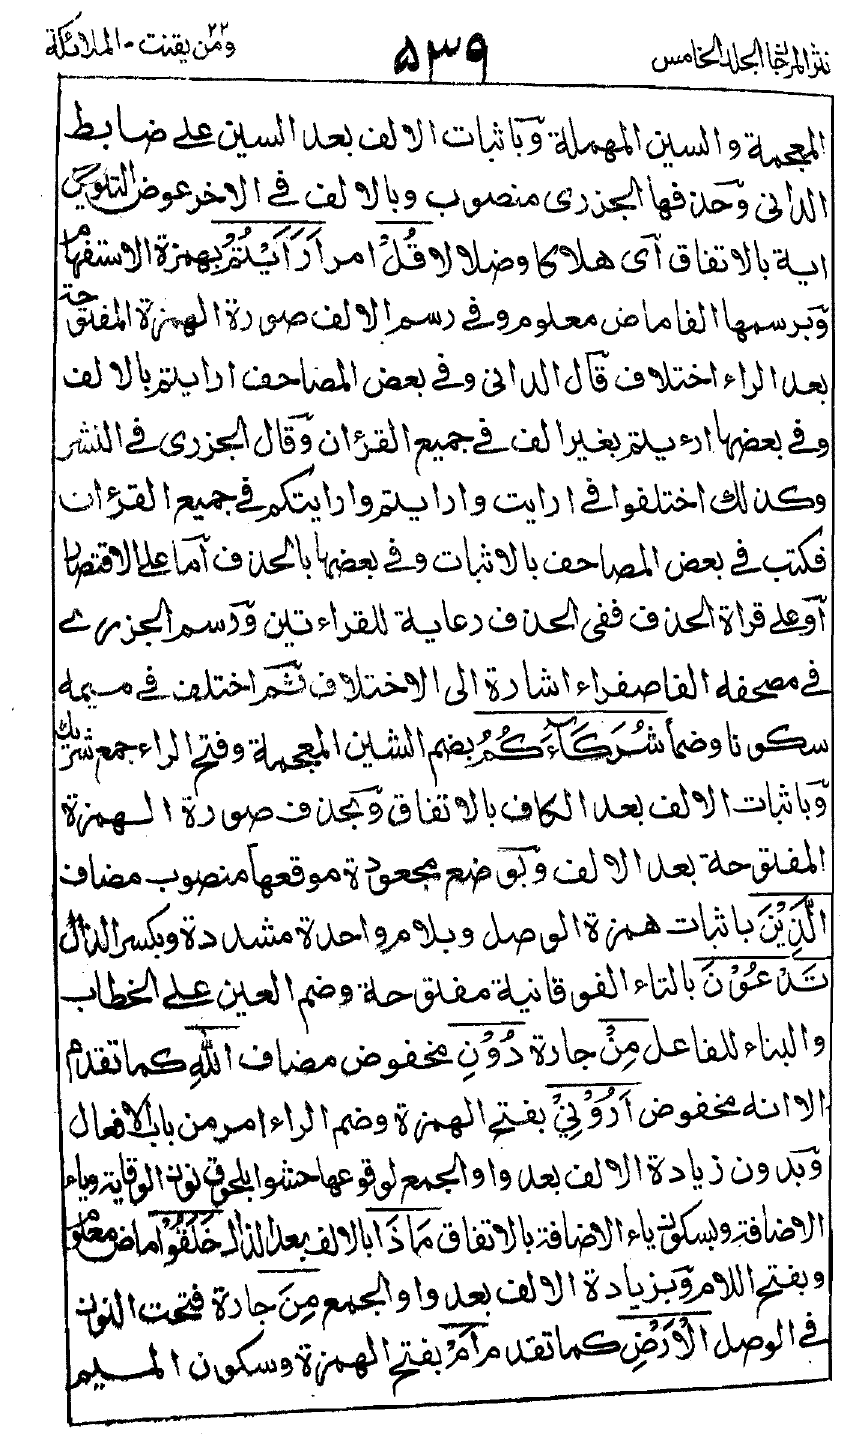 نثر المرجان المجلد الخامس ۵۳۹ ومن يقنت - الملائكة ۲۲
المعجمة والسين المهملة وباثبات الالف بعد السين على ضابط
الدانى وحذفها الجزرى منصوب وبالالف فى الاخر عوض التنوين
اية بالاتفاق آى هلاكا وضلالا قُلْ امر اَرَاَيْتُمْ بهمزة الاستفهام
وبرسمها الفا ماض معلوم وفى رسم الالف صورة الهمزة المفتوحة
بعد الراء اختلاف قال الدانى وفى بعض المصاحف ارايتم بالالف
وفى بعضها ارءيتم بغير الف فى جميع القرءان وقال الجزرى فى النشر
وكذلك اختلفوا فى ارايت وارايتم وارايتكم فى جميع القرءان
فكتب فى بعض المصاحف بالاثبات وفى بعضها بالحذف آما على الاقتصار
آو على قراة الحذف ففى الحذف رعاية للقراءتين ورسم الجزرى
فى مصحفه الفا صفراء اشارة الى الاختلاف ثم اختلف فى ميمه
سكونا وضمأ شُرَكَآءَكُمُ بضم الشين المعجمة وفتح الراء جمع شريك
وباثبات الالف بعد الكاف بالاتفاق وبحذف صورة الهمزة
المفتوحة بعد الالف وبوضع مجعودة موقعها منصوب مضاف
الَّذِيْنَ باثبات همزة الوصل وبلام واحدة مشددة وبكسر الذال
تَدْعُوْنَ بالتاء الفوقانية مفتوحة وضم العين على الخطاب
والبناء للفاعل مِنْ جارة دُوْنِ مخفوض مضاف اللّٰهِ كما تقدم
الا انه مخفوض اَرُوْنِيْ بفتح الهمزة وضم الراء امر من باب الافعال
وبدون زيادة الالف بعد واو الجمع لوقوعها حشوا بلحوق نون الوقاية وياء
الاضافة وبسكون ياء الاضافة بالاتفاق مَاذَا بالالف بعد الذال خَلَقُوْا ماض معلوم
وبفتح اللام وبزيادة الالف بعد واو الجمع مِنَ جارة فتحت النون
فى الوصل الْاَرْضِ كما تقدم اَمْ بفتح الهمزة وسكون الميم